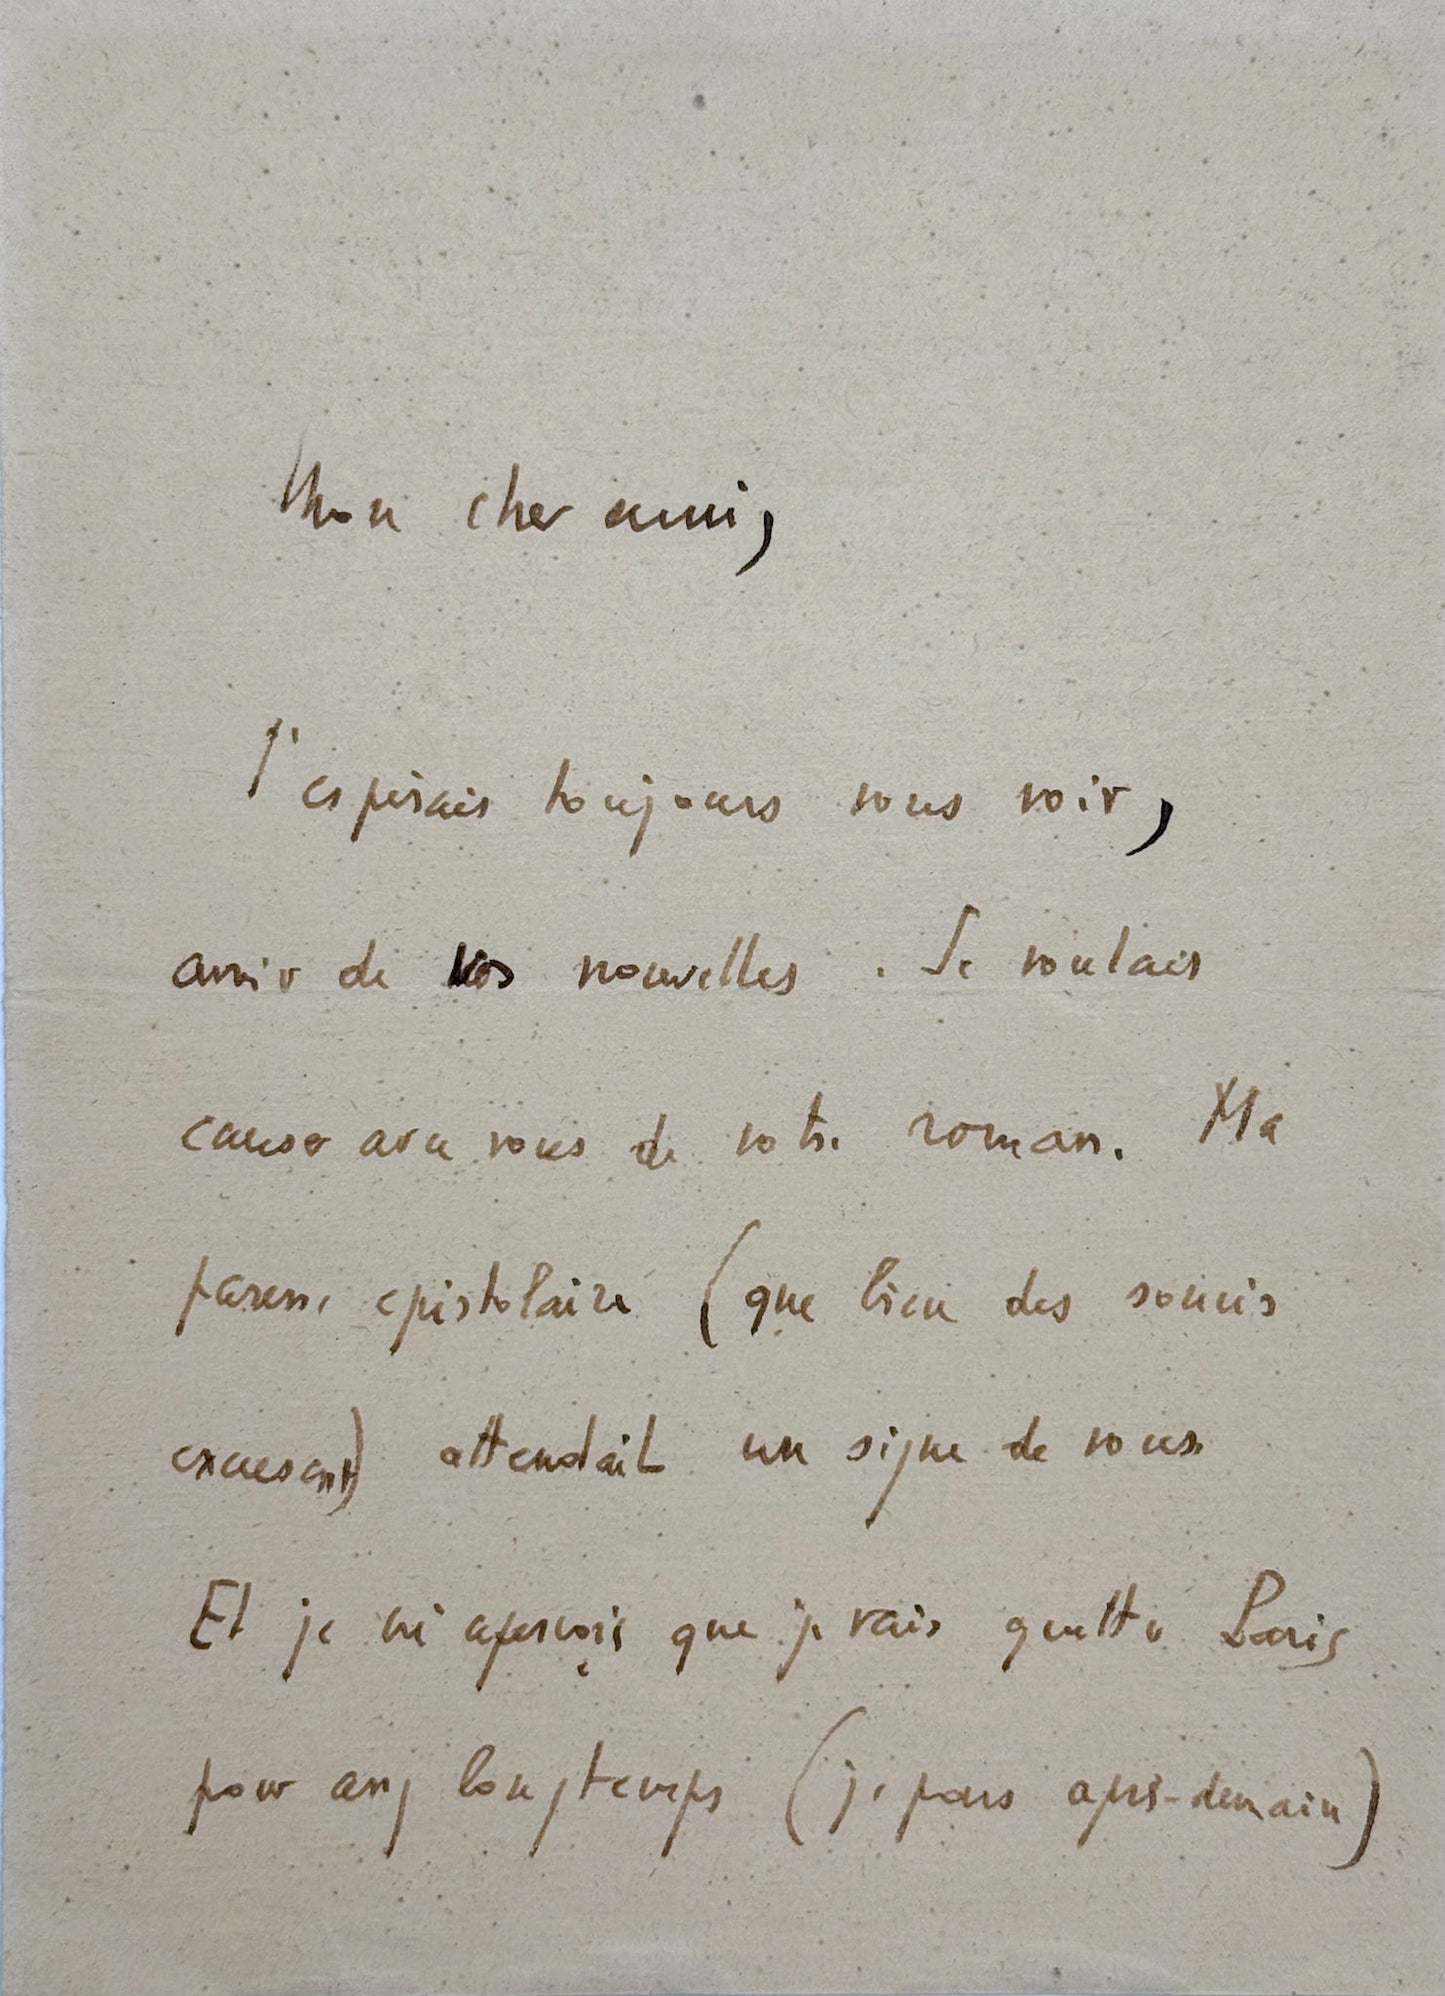 Mon cher ami,
J'espérais toujours vous voir,
avoir de vos nouvelles. Je voulais
causer avec vous de votre roman. Ma
paresse épistolaire (que bien des soucis
excusent) attendait un signe de vous.
Et je m'aperçois que je vais quitter Paris
pour assez longtemps (je pars après-demain)